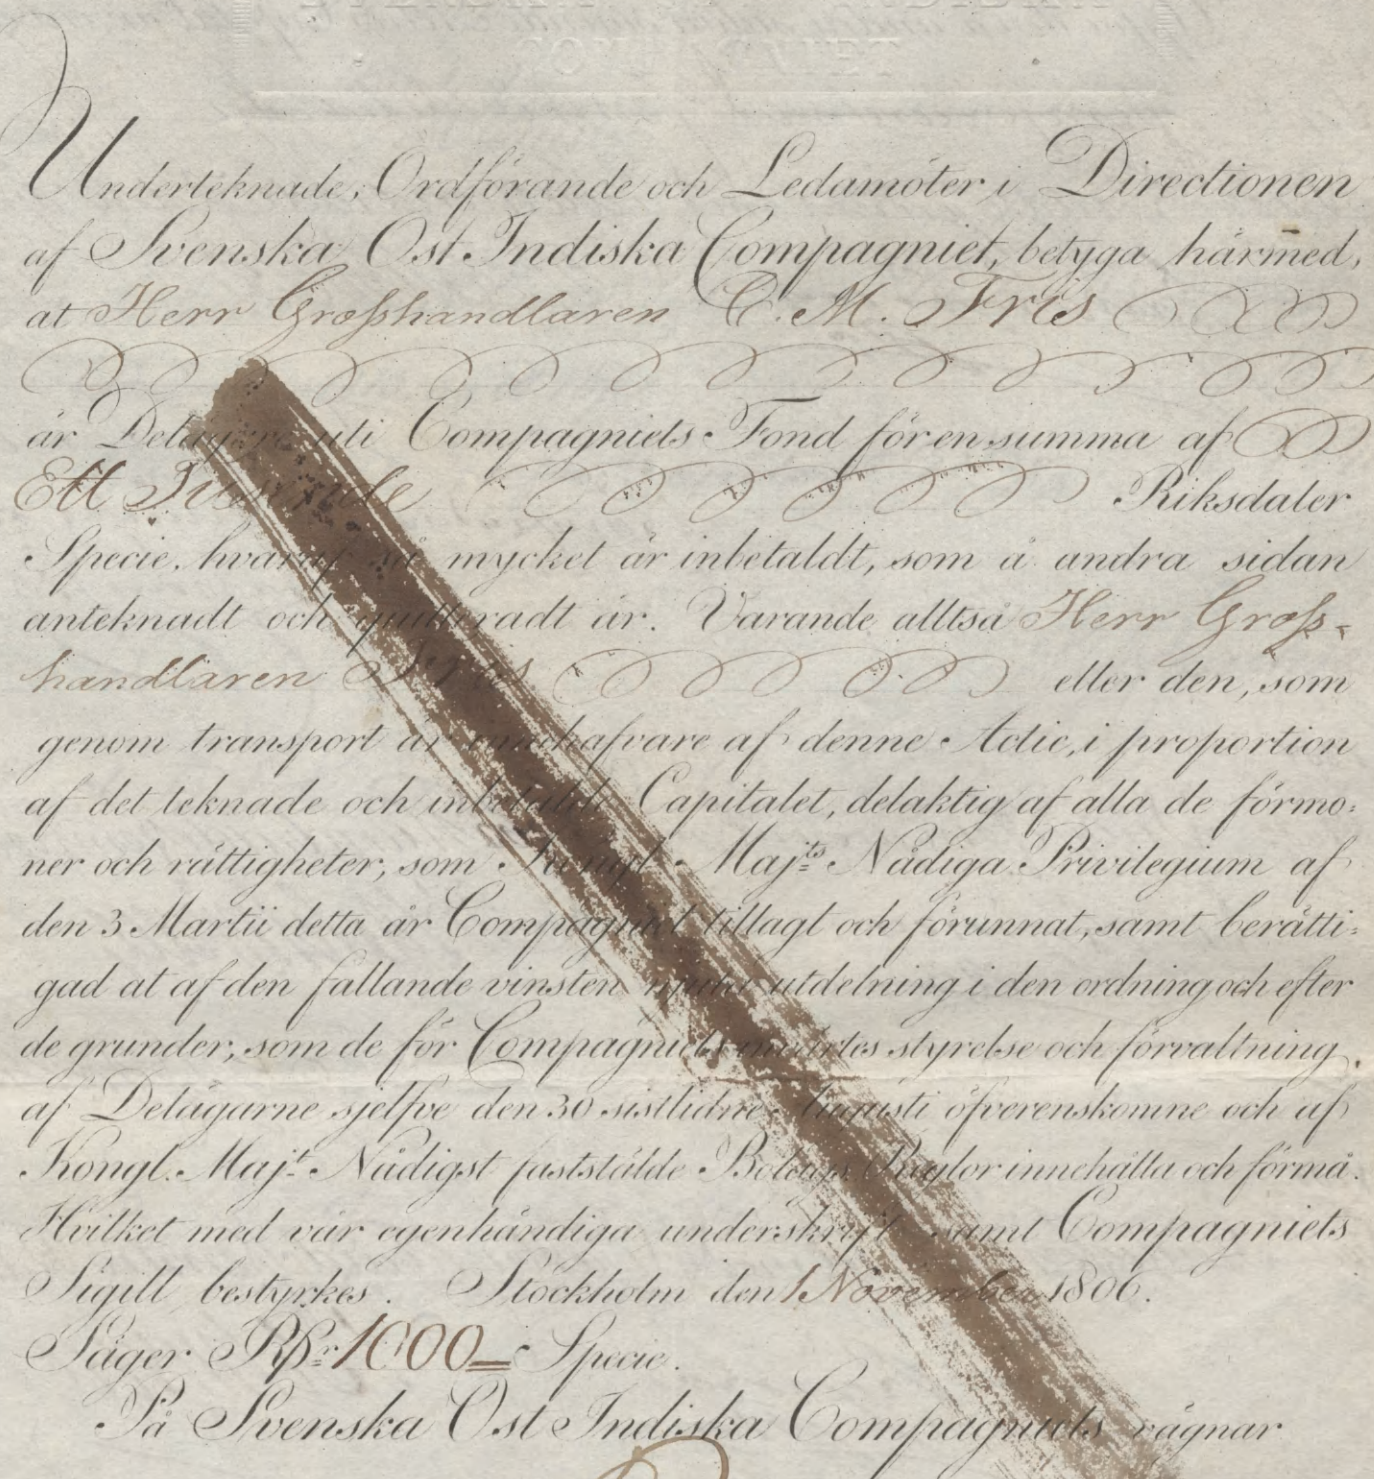 SVENSKA INDISKA
COMPAGNIET
Underteknade, Ordförande och Ledamöter i Directionen
af Svenska Ost Indiska Compagniet, betyga härmed,
at Herr Grosshandlaren C. M. Fris
är Delägare uti Compagniets Fond för en summa af
Ett Tusende Riksdaler
Specie, hvaraf så mycket är inbetaldt, som å andra sidan
anteknadt och quitteradt är. Varande alltså Herr Gross-
handlaren Fris eller den, som
genom transport är innehafvare af denne Actie, i proportion
af det teknade och inbetalde Capitalet, delaktig af alla de förmo:
ner och rättigheter, som Kongl. Maj:ts Nådiga Privilegium af
den 3 Martii detta år Compagniet tillagt och förunnat, samt berätti:
gad at af den fallande vinsten njuta utdelning i den ordning och efter
de grunder, som de för Compagniets inwärtes styrelse och förvaltning
af Delägarne sjelfve den 30 sistlidne Augusti öfverenskomne och af
Kongl. Maj:t Nådigst fastställde Bolags Reglor innehålla och förmå.
Hvilket med vår egenhändiga underskrift samt Compagniets
Sigill bestyrkes. Stockholm den 1 November 1806.
Säger Rdr 1000 Specie.
På Svenska Ost Indiska Compagniets vägnar